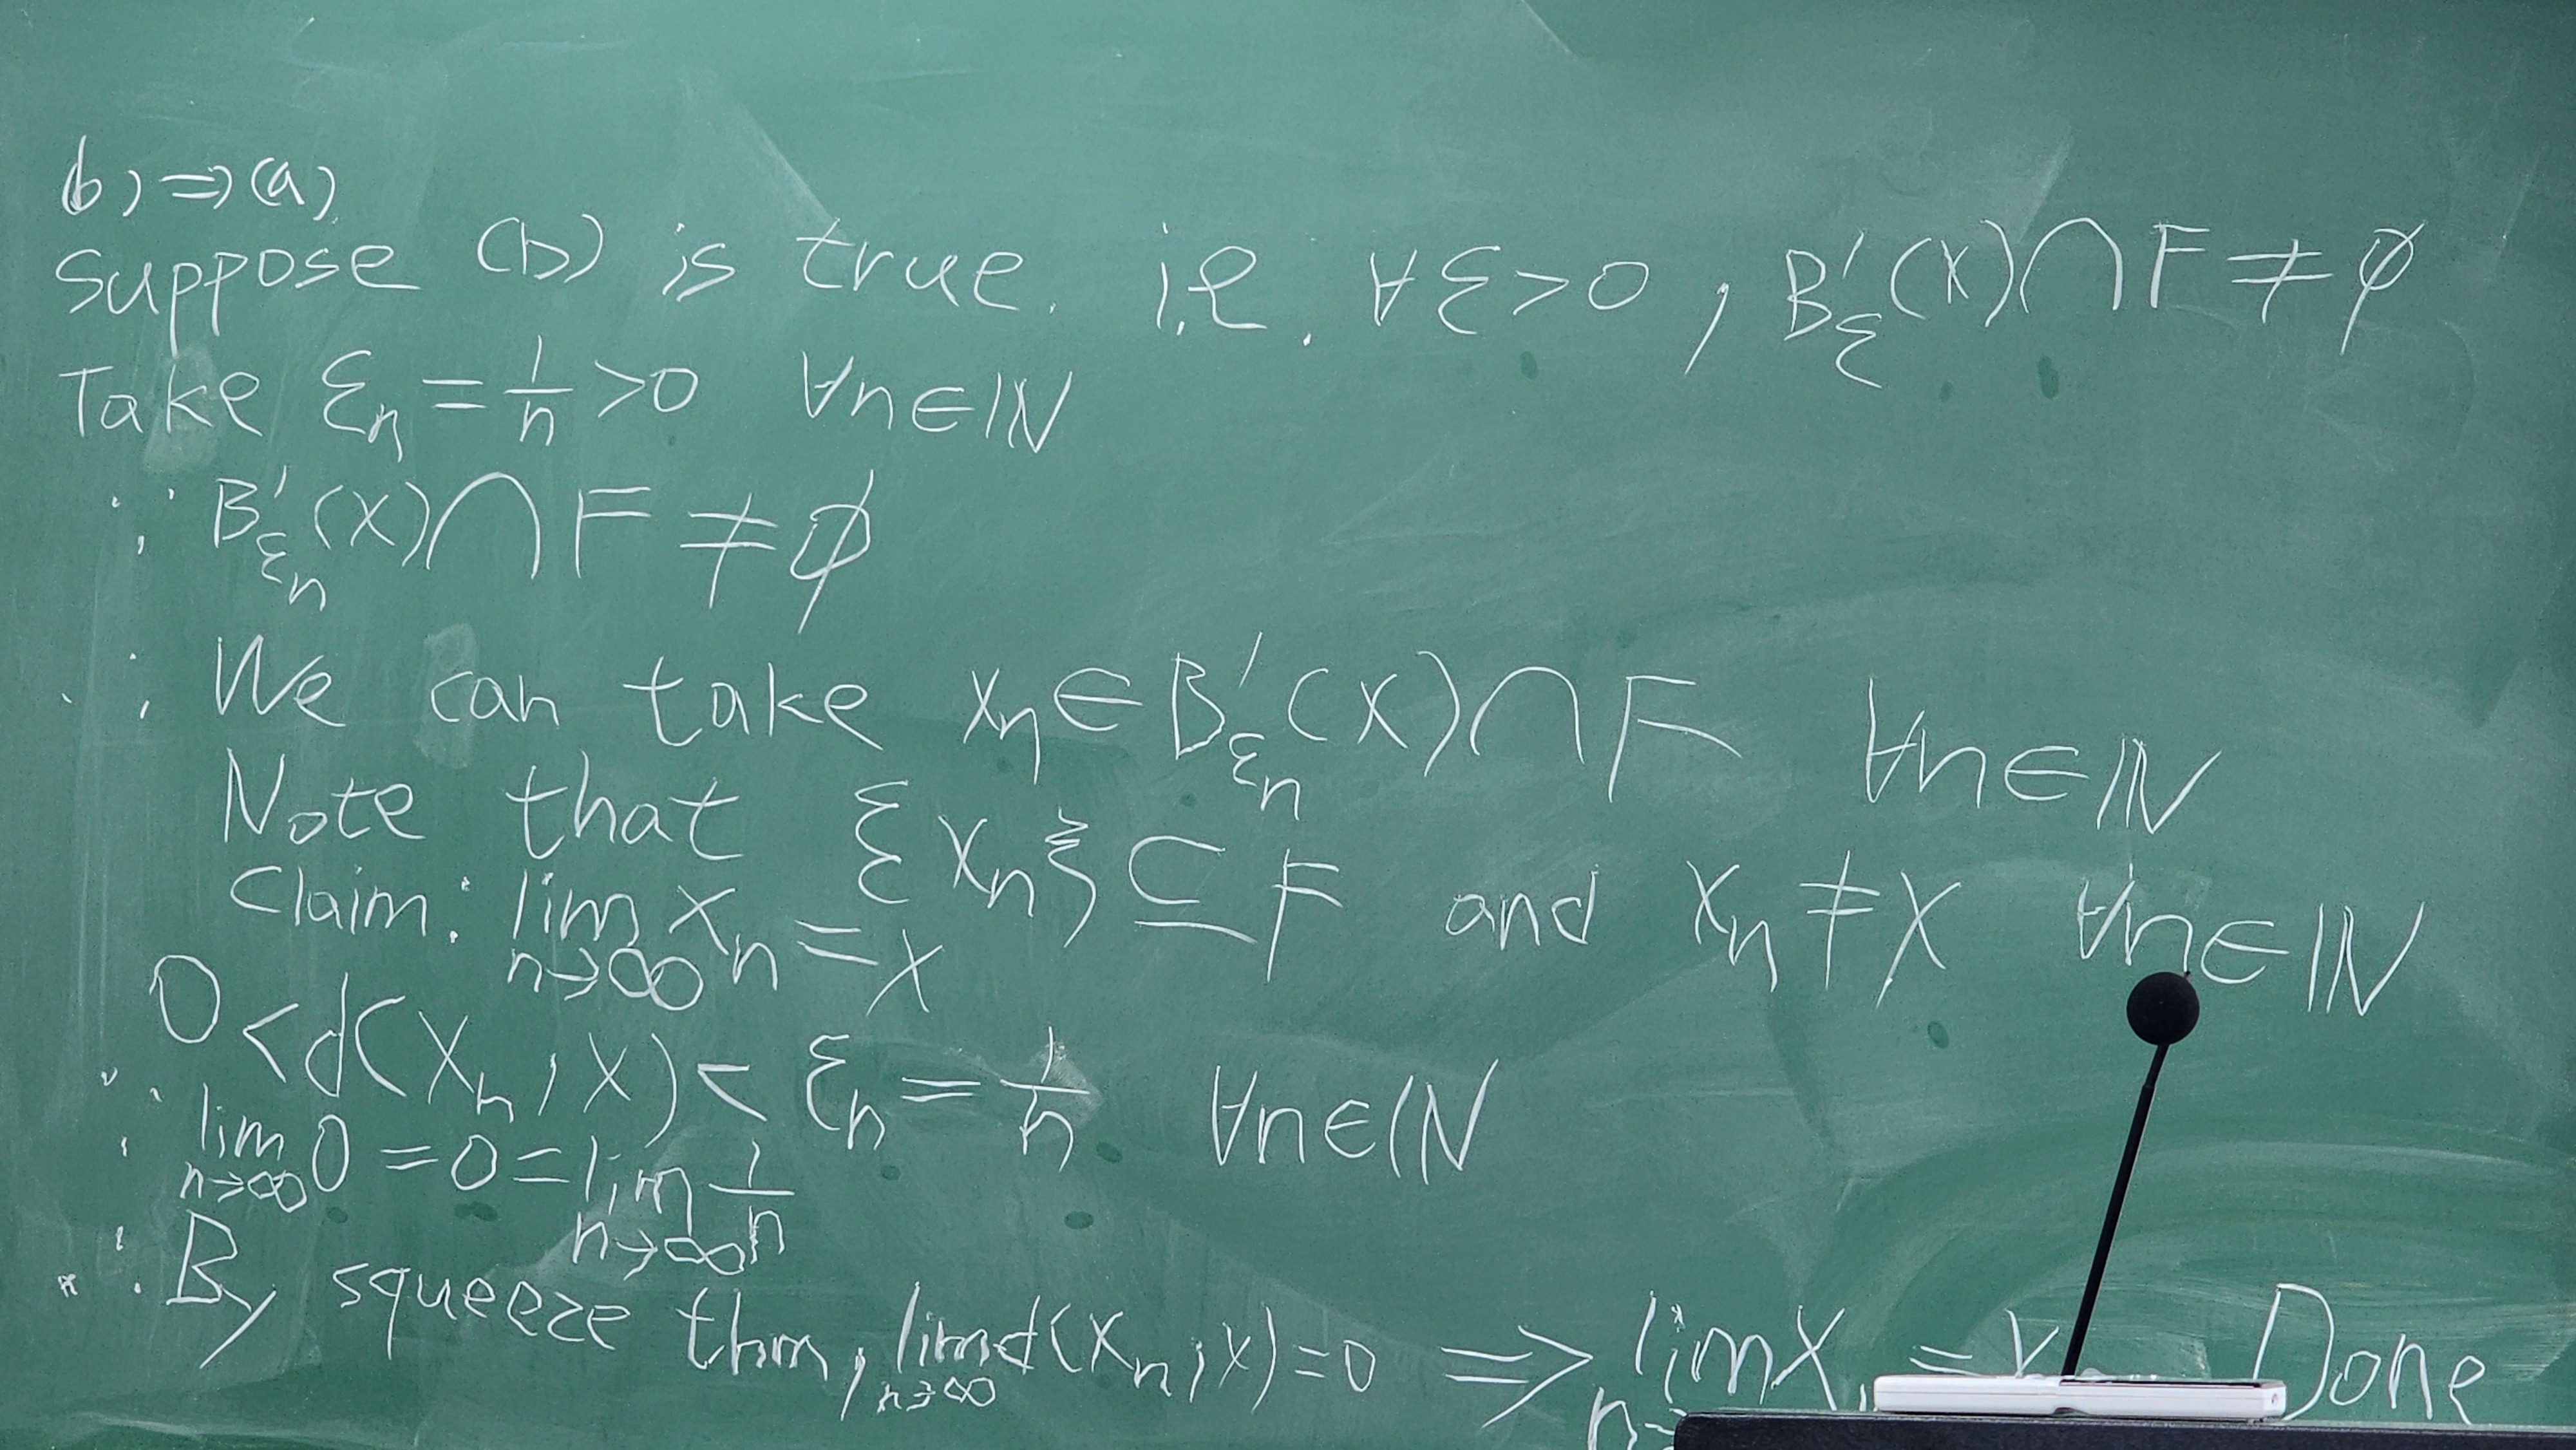 b) ⇒ (a)
Suppose (b) is true. i.e. ∀ε>0, B'_ε(x)∩F≠∅
Take ε_n = 1/n >0 ∀n∈ℕ
∵ B'_{ε_n}(x)∩F≠∅
∴ We can take x_n∈B'_{ε_n}(x)∩F ∀n∈ℕ
Note that {x_n}⊆F and x_n≠x ∀n∈ℕ
Claim: lim_{n→∞} x_n = x
0<d(x_n,x)<ε_n=1/n ∀n∈ℕ
∵ lim_{n→∞} 0=0=lim_{n→∞} 1/n
∴ By squeeze thm, lim_{n→∞} d(x_n,x)=0 ⇒ lim x = Done